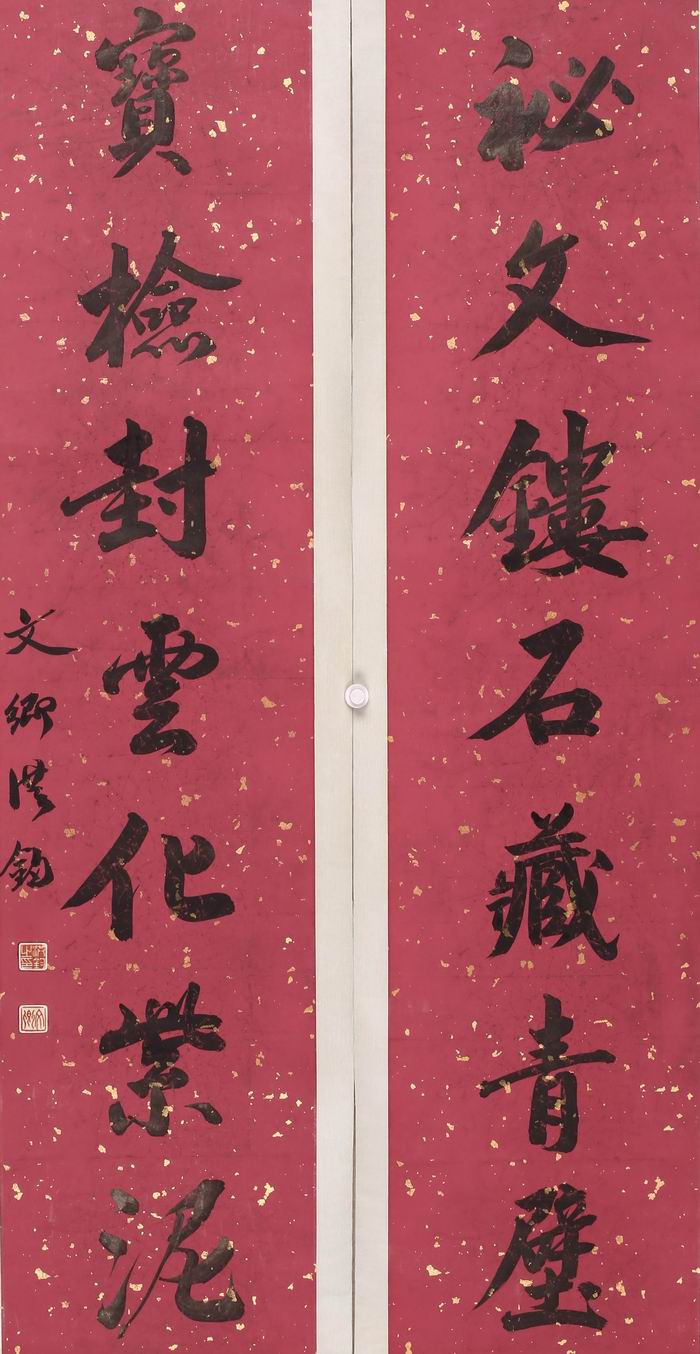 祕文鏤石藏青壁
寶檢封雲化紫泥
文卿洪鈞